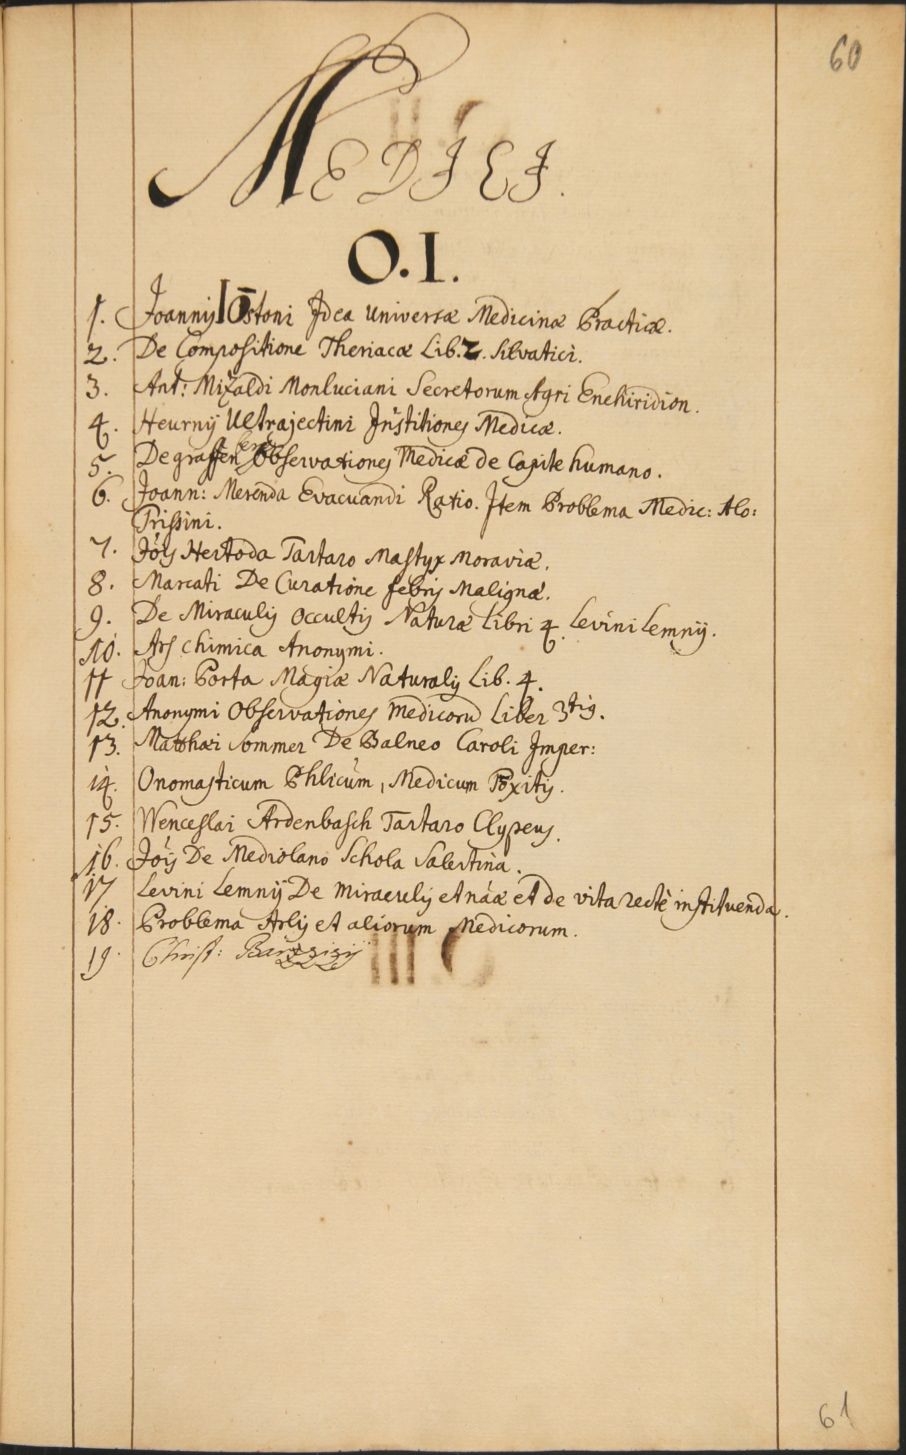 60
MEDICI.
O.I.
1. Joannis Iōstoni Idea Universæ Medicinæ Practicæ.
2. De Compositione Theriacæ Lib. 2. Silvatici.
3. Ant: Mizaldi Monluciani Secretorum Agri Enchiridion.
4. Heurnij Ultrajectini Institiones Medicæ.
5. De graffenberg Observationes Medicæ de Capite humano.
6. Joann: Merenda Evacuandi Ratio. Item Problema Medic: Alo:
Trissini.
7. Jois Hertoda Tartaro Mastyx Moraviæ.
8. Marcati De Curatione febris Malignæ.
9. De Miraculis Occultis Naturæ Libri 4. Levini Lemnij.
10. Ars chimica Anonymi.
11 Joan: Porta Magiæ Naturalis Lib. 4.
12. Anonymi Observationes Medicorū Liber 3tig.
13. Matthæi Sommer De Balneo Caroli Imper:
14. Onomasticum Phlicum, Medicum Toxitis.
15. Wenceslai Ardenbasch Tartaro Clypeus.
16. Jois De Mediolano Schola Salertina.
17 Levini Lemnij De miraculis et náæ et de vita rectè instituenda.
18. Problema Arlis et aliorum Medicorum.
19. Christ: Barzizij
61